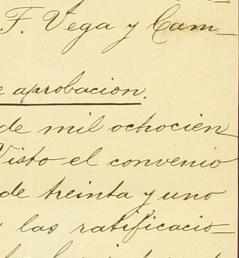 F. Vega y Cam-
aprobacion.
de mil ochocien
Visto el convenio
de treinta y uno
las ratificacio-